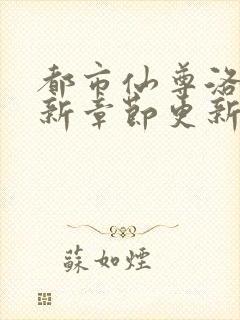 都市仙尊洛
新章節更新
蘇如煙